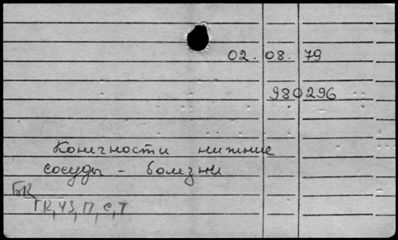 02. 08. 79
980296
Конечности нижние
сосуды - болезни
БК
ГК, УЗ, П, С, Т